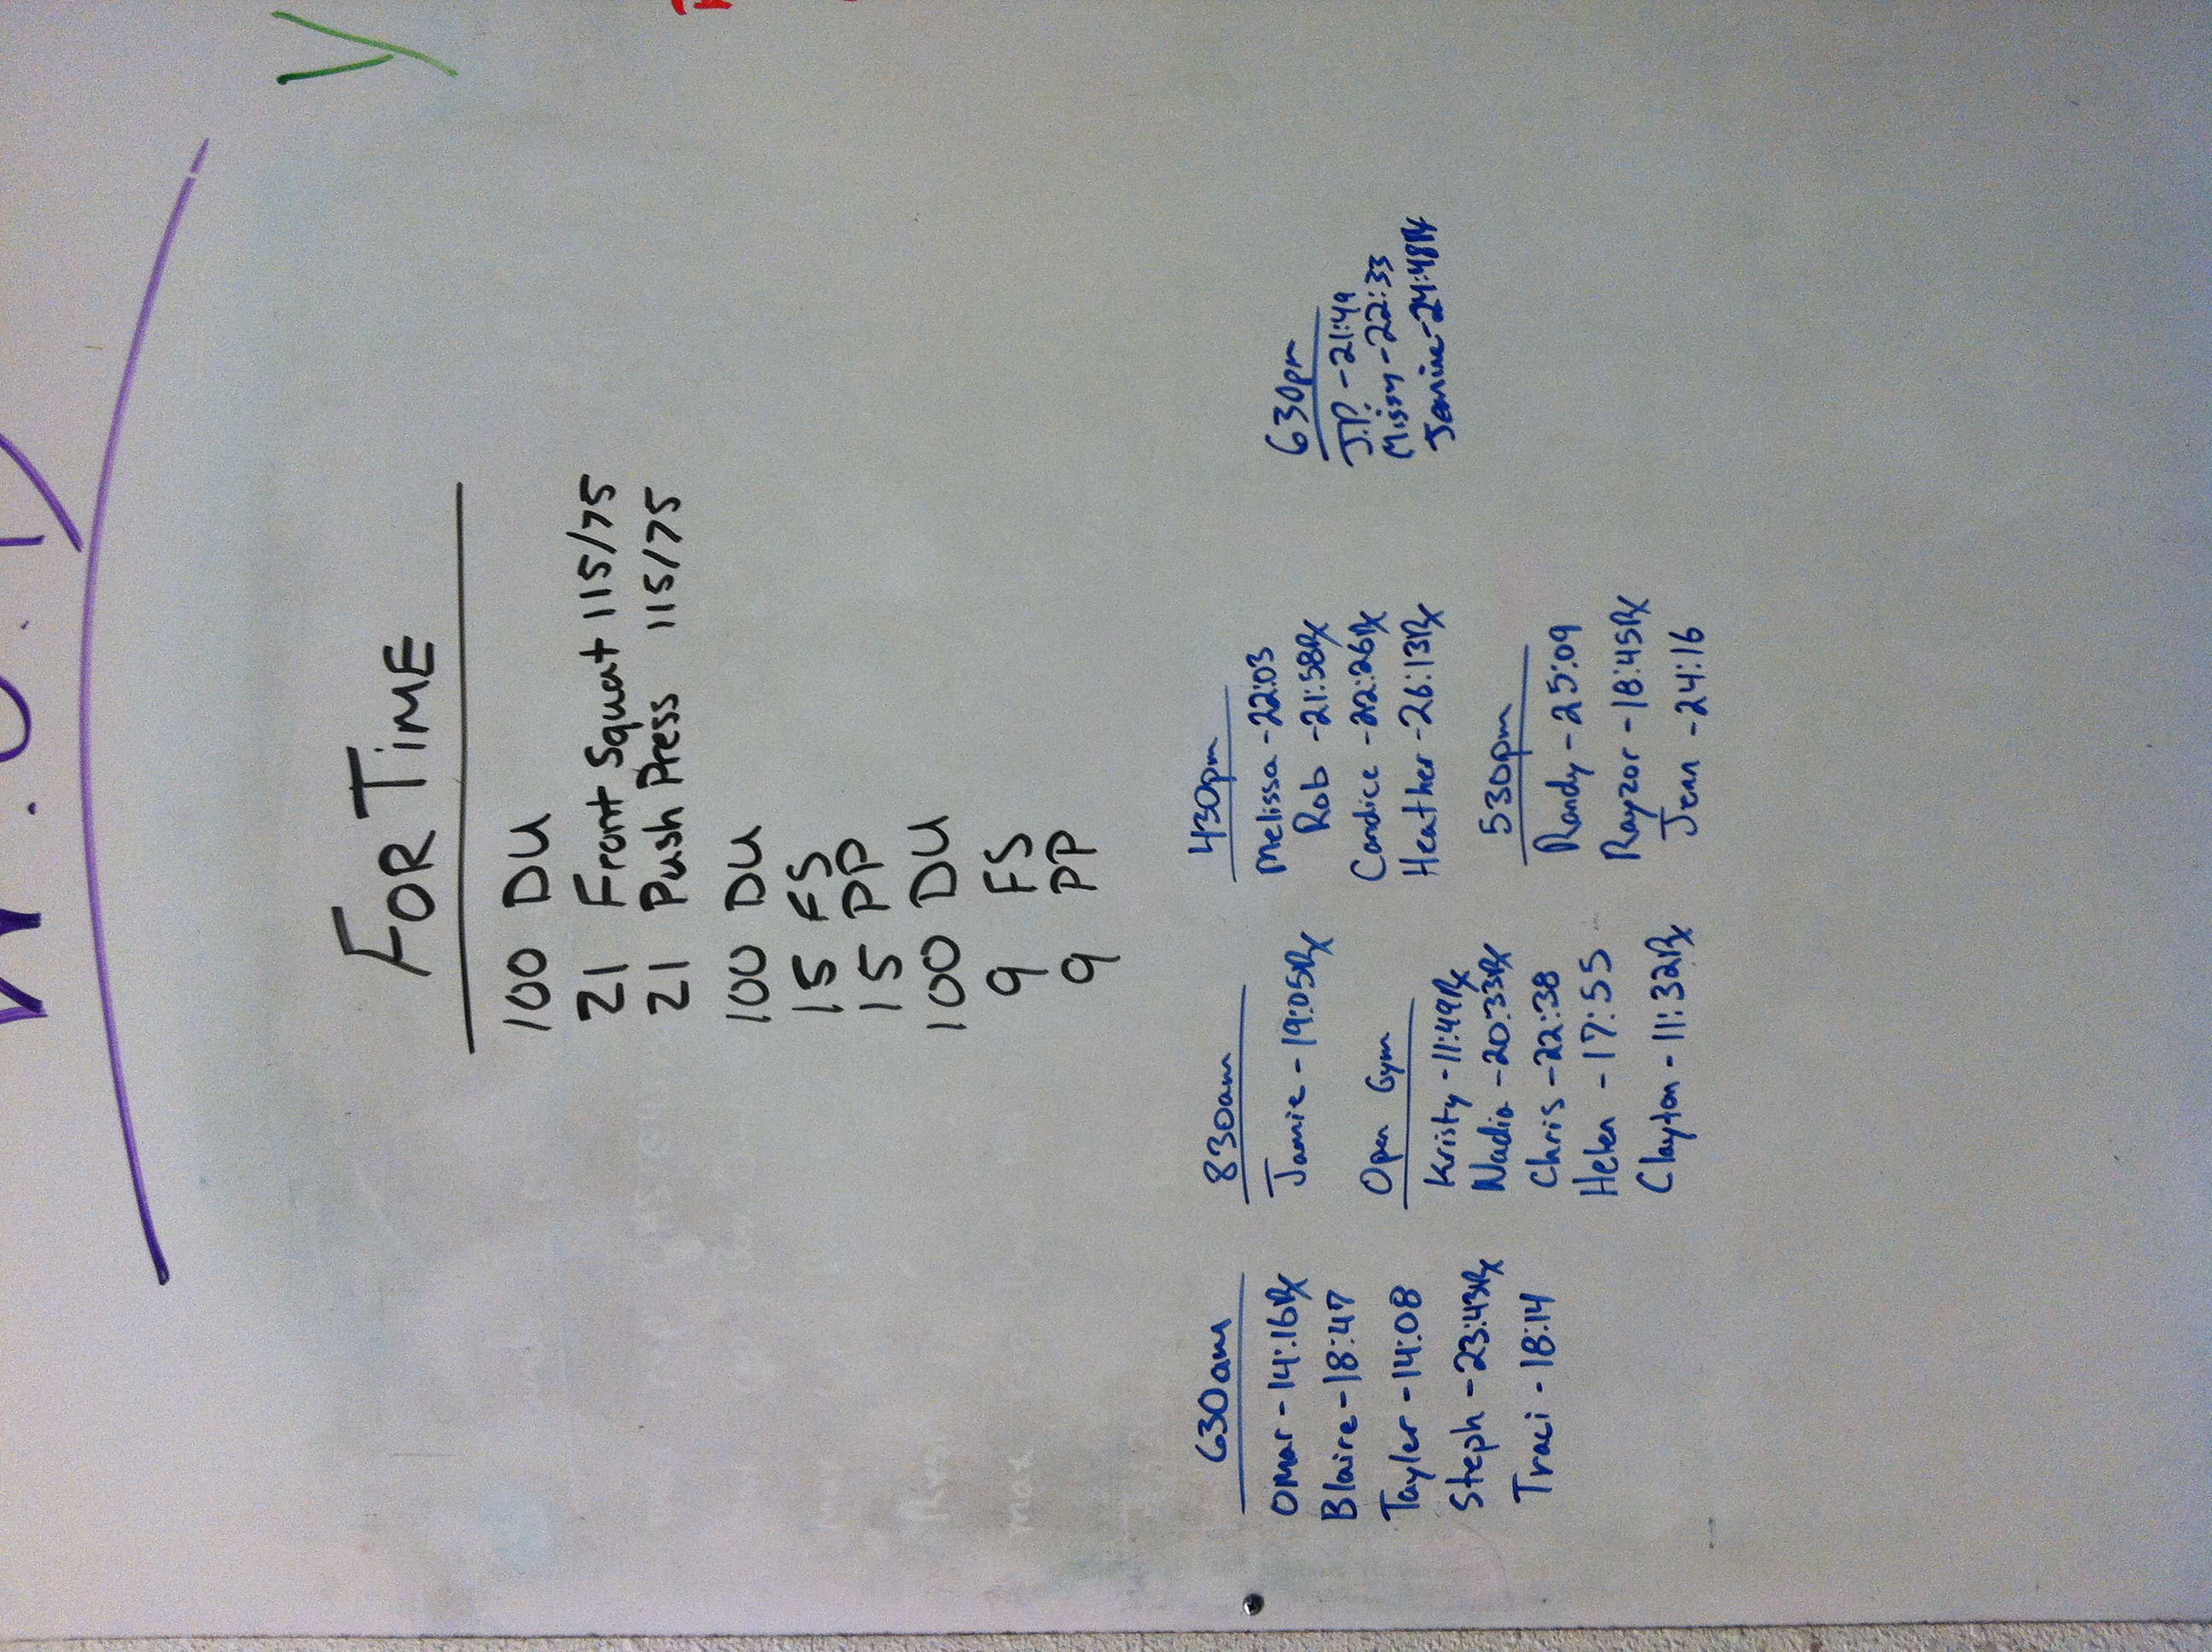 FOR TIME
100 DU
21 Front Squat 115/75
21 Push Press 115/75
100 DU
15 FS
15 PP
100 DU
9 FS
9 PP
630am
Omar - 14:16Rx
Blaire - 18:47
Tayler - 14:08
Steph - 23:43Rx
Traci - 18:14
830am
Jamie - 19:05Rx
Open Gym
Kristy - 11:49Rx
Nadia - 20:33Rx
Chris - 22:38
Helen - 17:55
Clayton - 11:32Rx
430pm
Melissa - 22:03
Rob - 21:58Rx
Candice - 22:26Rx
Heather - 26:13Rx
530pm
Randy - 25:09
Rayzor - 18:45Rx
Jenn - 24:16
630pm
J.P. - 21:49
Missy - 22:33
Jennine - 24:48Rx